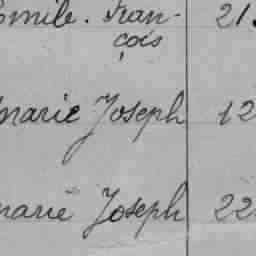 Emile. Fran- 21.
çois
marie Joseph 12
marie Joseph 22